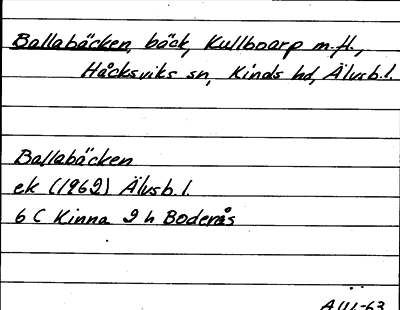 Ballabäcken, bäck, Kullboarp m.fl.,
Håcksviks sn, Kinds hd, Älvsb.l.
Ballabäcken
ek (1962) Älvsb.l.
6 C Kinna 9 h Boderås